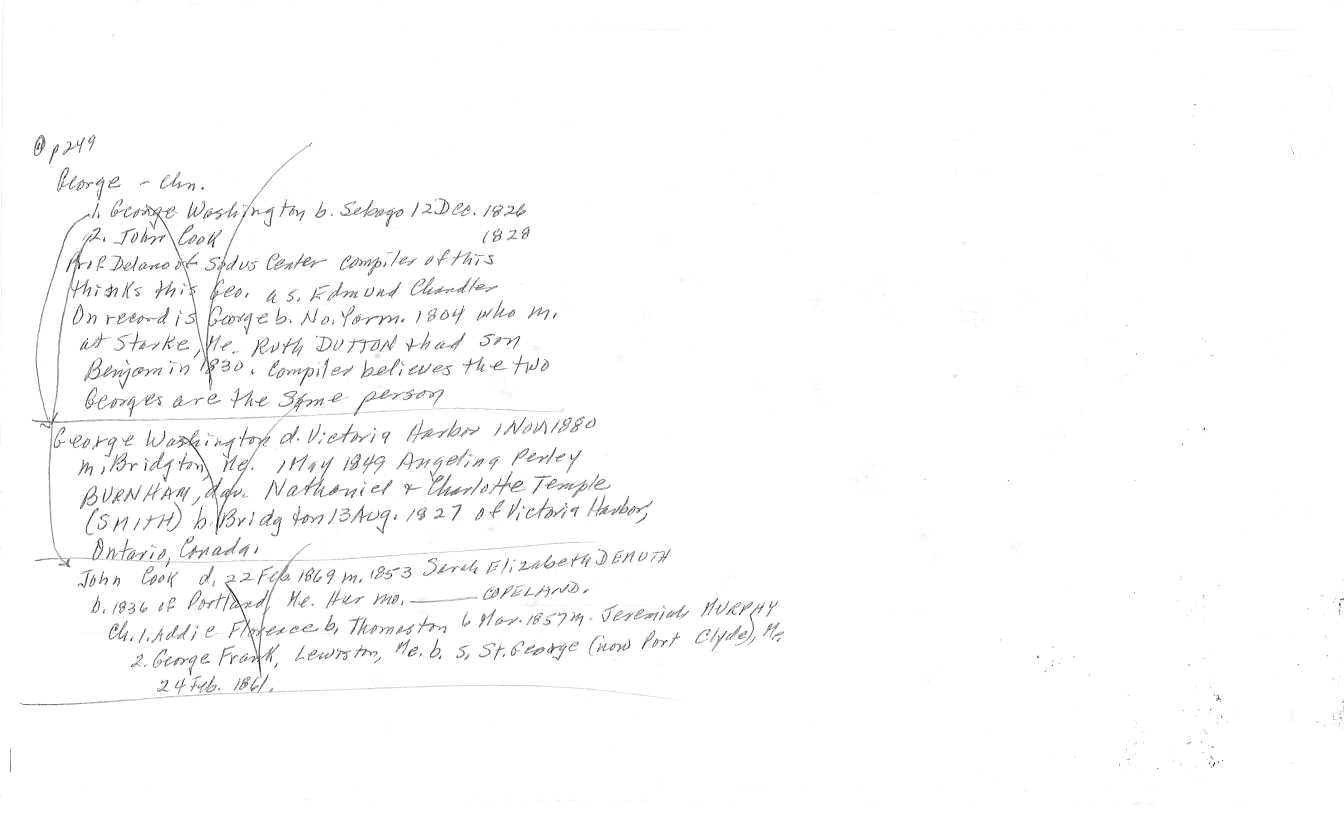 @ p249
George - Chn.
1. George Washington b. Sebago 12 Dec. 1826
2. John Cook 1828
Prof. Delano of Sodus Center compiler of this
thinks this Geo. a s. Edmund Chandler
On record is George b. No. Yarm. 1804 who m.
at Starke, Me. Ruth DUTTON & had son
Benjamin 1830. Compiler believes the two
Georges are the same person
George Washington d. Victoria Harbor 1 Nov 1880
m. Bridgton, Me. 1 May 1849 Angelina Perley
BURNHAM, dau. Nathaniel & Charlotte Temple
(SMITH) b. Bridgton 13 Aug. 1827 of Victoria Harbor,
Ontario, Canada.
John Cook d. 22 Feb 1869 m. 1853 Sarah Elizabeth DEMUTH
b. 1836 of Portland, Me. Her mo. ——— COPELAND.
Ch. 1. Addie Florence b. Thomaston 6 Mar. 1857 m. Jeremiah MURPHY
2. George Frank, Lewiston, Me. b. S. St. George (now Port Clyde), Me.
24 Feb. 1861.